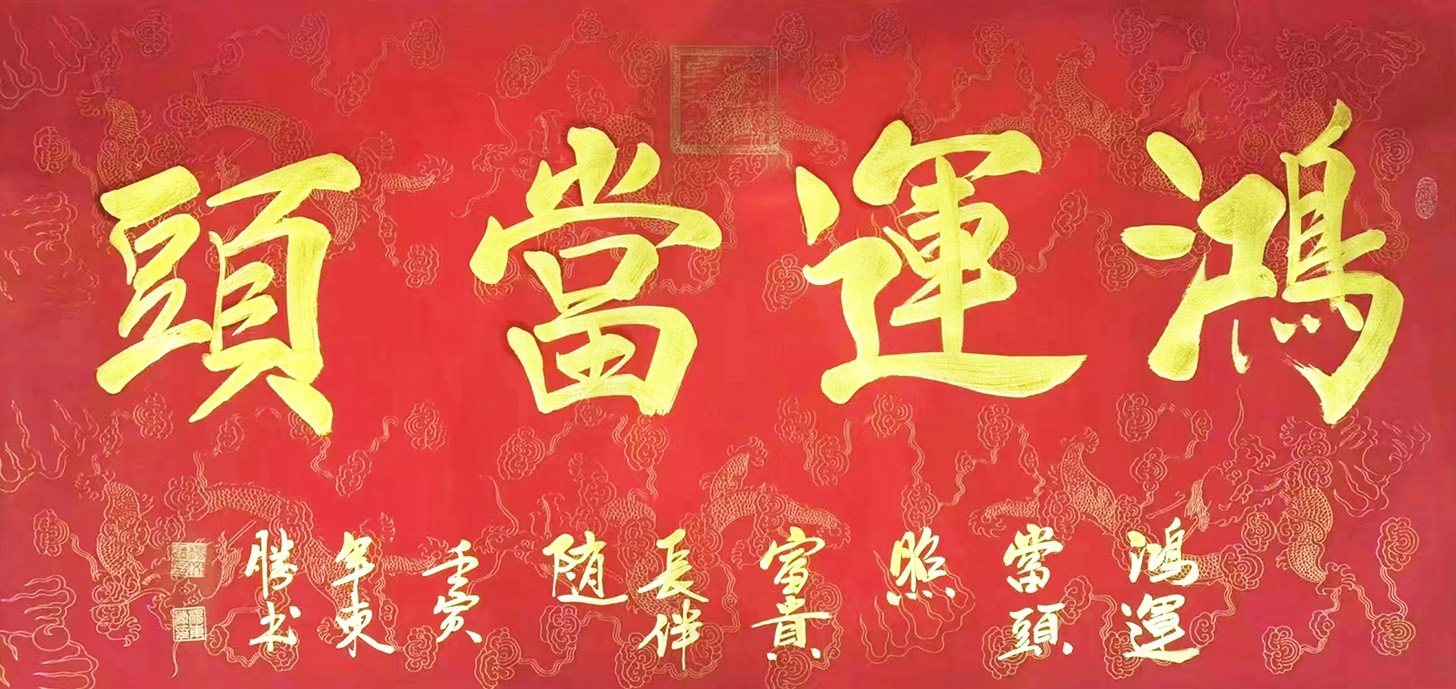 鴻運當頭
鴻運
當頭
照
富貴
長伴
随
壬寅
年東
勝书